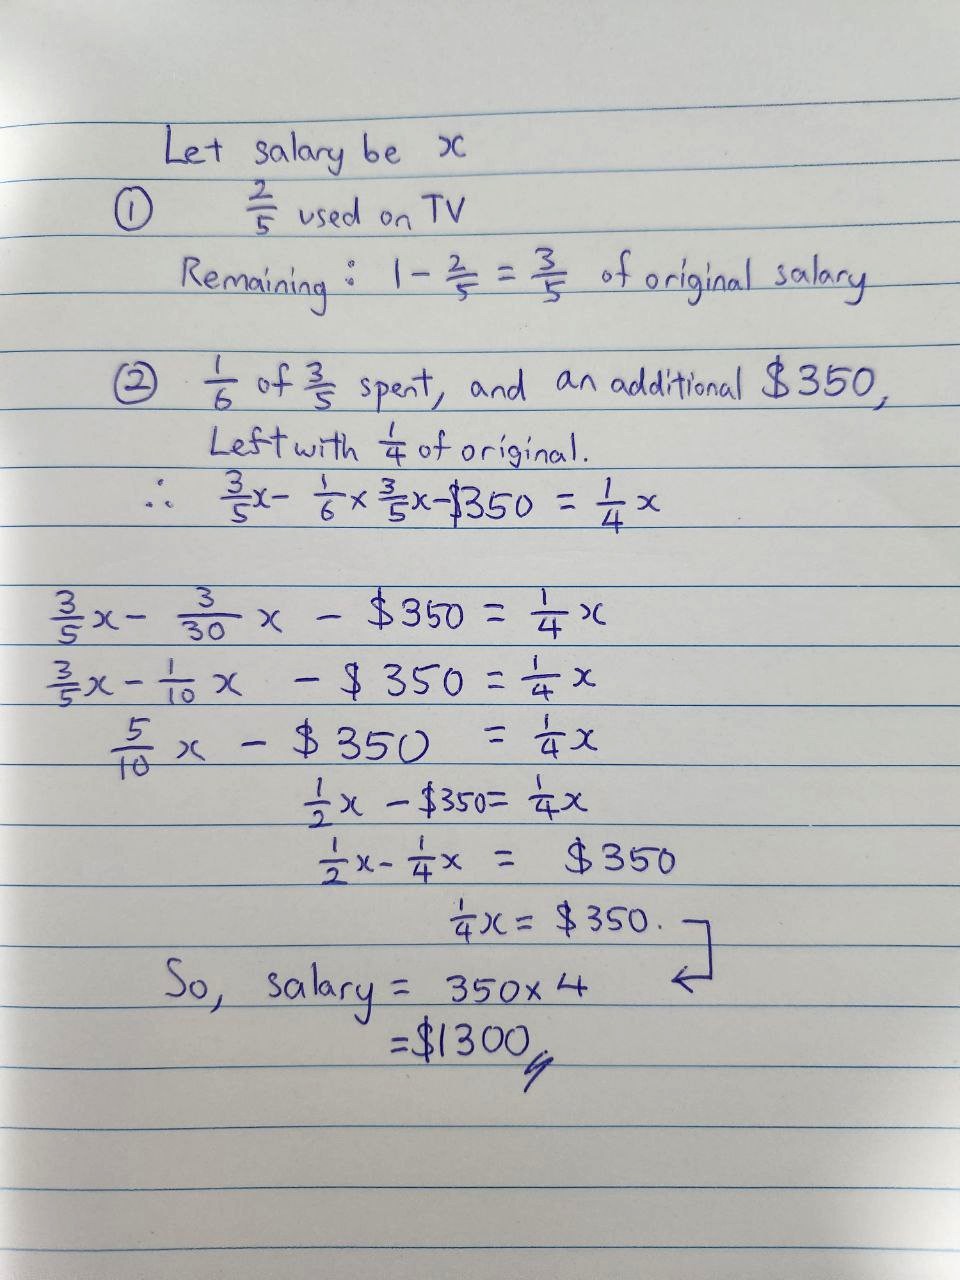 Let salary be x
① 2/5 used on TV
Remaining : 1 - 2/5 = 3/5 of original salary
② 1/6 of 3/5 spent, and an additional $350,
Left with 1/4 of original.
∴ 3/5x - 1/6 x 3/5x - $350 = 1/4 x
3/5 x - 3/30 x - $350 = 1/4 x
3/5 x - 1/10 x - $350 = 1/4 x
5/10 x - $350 = 1/4 x
1/2 x - $350 = 1/4 x
1/2 x - 1/4 x = $350
1/4 x = $350.
So, salary = 350 x 4
= $1300